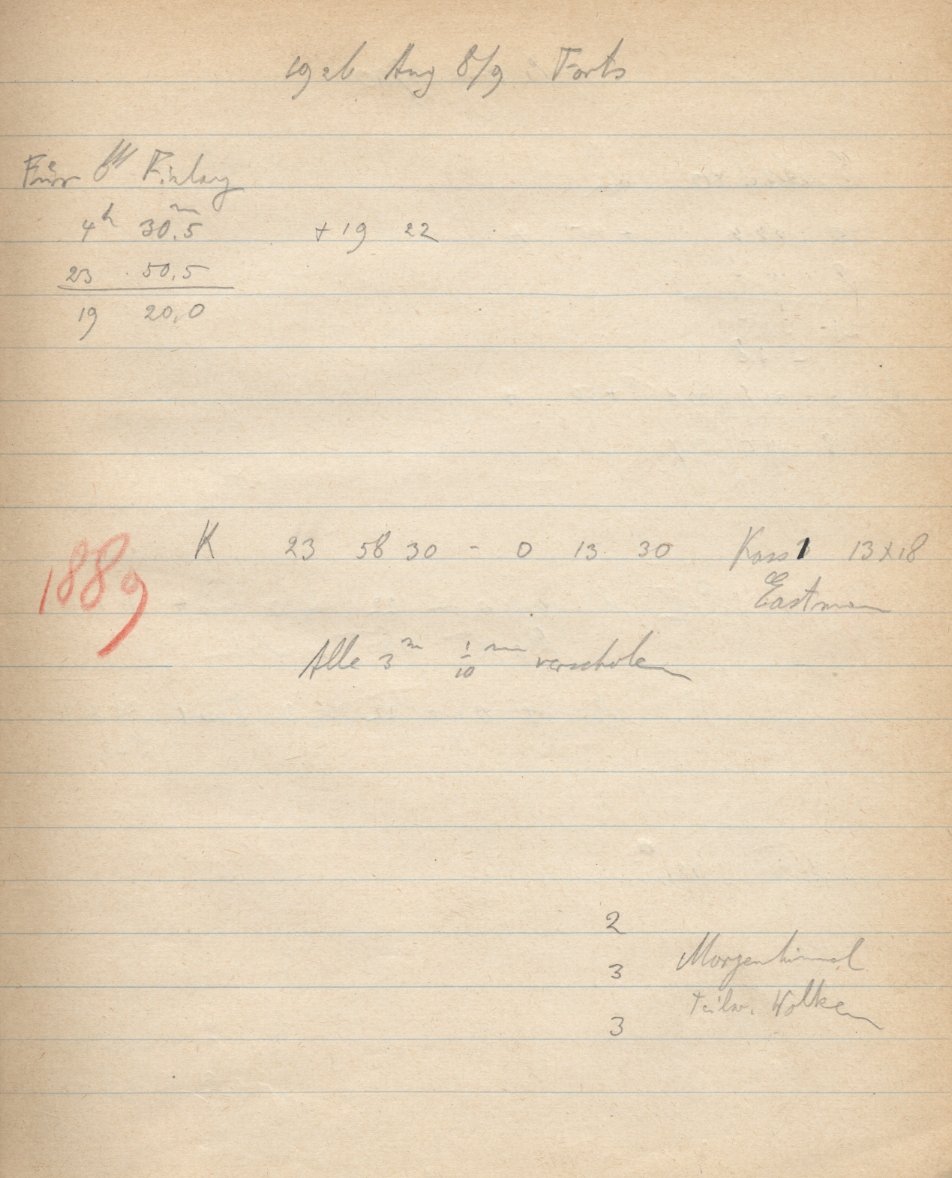 1926 Aug 8/9 Forts
Für Finlay
4h 30m.5 +19 22
23 50.5
19 20.0
1889 K 23 58 30 - 0 13 30 Kass 1 13x18
Eastman
Alle 3m 1/10 mm verschoben
2
3 Morgenhimmel
teilw. Wolken
3